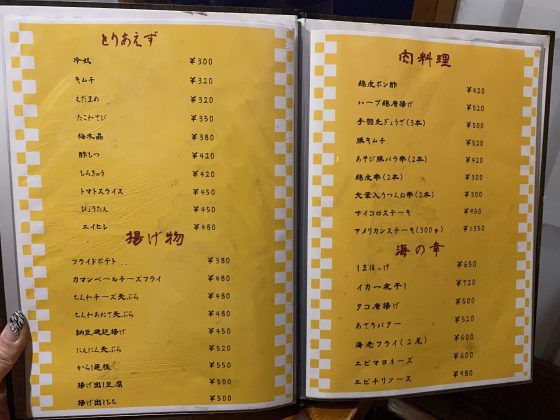 とりあえず
冷奴 ¥300
キムチ ¥320
えだまめ ¥320
たこわさび ¥350
梅水晶 ¥380
酢もつ ¥420
もろきゅう ¥420
トマトスライス ¥450
ひょうたん ¥450
エイヒレ ¥480
揚げ物
フライドポテト ¥380
カマンベールチーズフライ ¥480
ちくわチーズ天ぷら ¥480
ちくわあおさ天ぷら ¥480
納豆磯辺揚げ ¥450
にんにく天ぷら ¥520
から揚げ ¥550
揚げ出し豆腐 ¥500
揚げ出しもち ¥500
肉料理
鶏皮ポン酢 ¥420
ハーブ鶏唐揚げ ¥520
手羽先ぎょうざ(3本) ¥500
豚キムチ ¥520
あそび豚バラ串(2本) ¥420
鶏皮串(2本) ¥300
大葉入りつくね串(2本) ¥300
サイコロステーキ ¥950
アメリカンステーキ(300g) ¥1350
海の幸
しまほっけ ¥650
イカ一夜干し ¥720
タコ唐揚げ ¥500
あさりバター ¥520
海老フライ(2尾) ¥600
エビマヨチーズ ¥600
エビチリソース ¥980